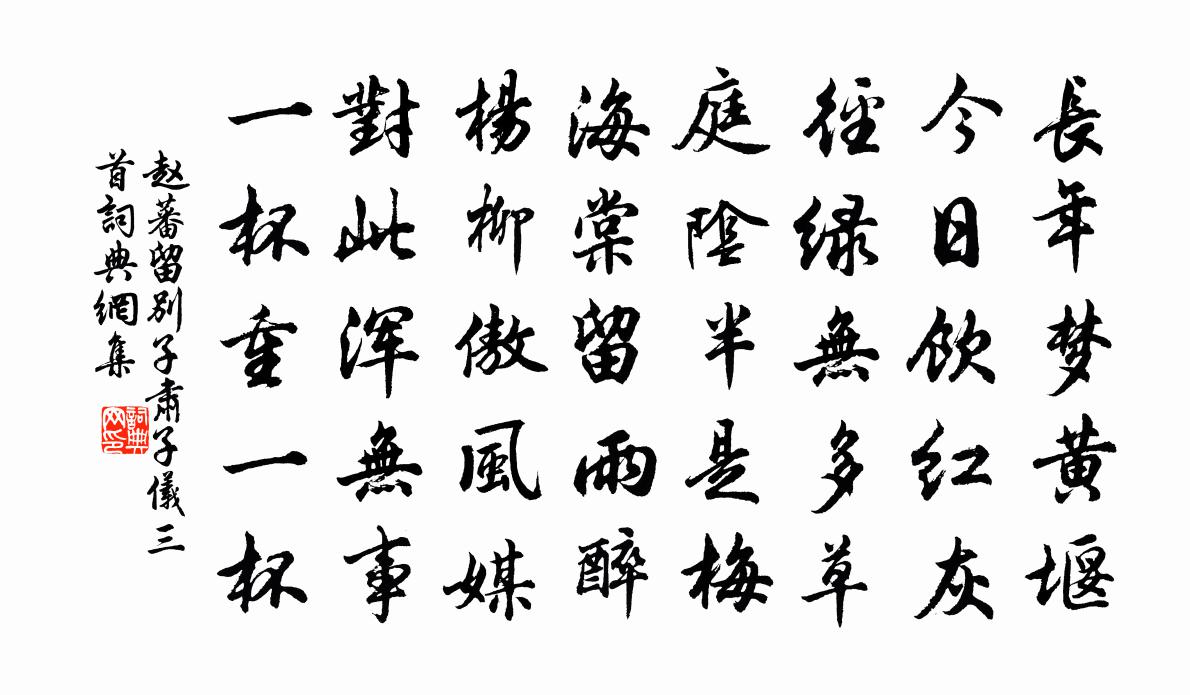 長年梦黄堰
今日飲红灰
徑緑無多草
庭陰半是梅
海棠留雨醉
楊柳傲風媒
對此浑無事
一杯重一杯
赵蕃留别子肅子儀三
首詞典網集
詞典网印